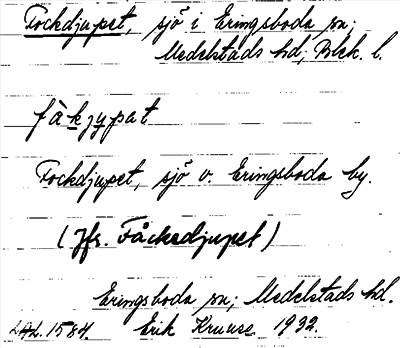 Fockdjupet, sjö i Eringsboda sn;
Medelstads hd; Blek. l.
fàkjypat
Fockdjupet, sjö v. Eringsboda by.
(Jfr. Fåckedjupet)
Eringsboda sn; Medelstads hd.
1584. Erik Kruuse 1932.